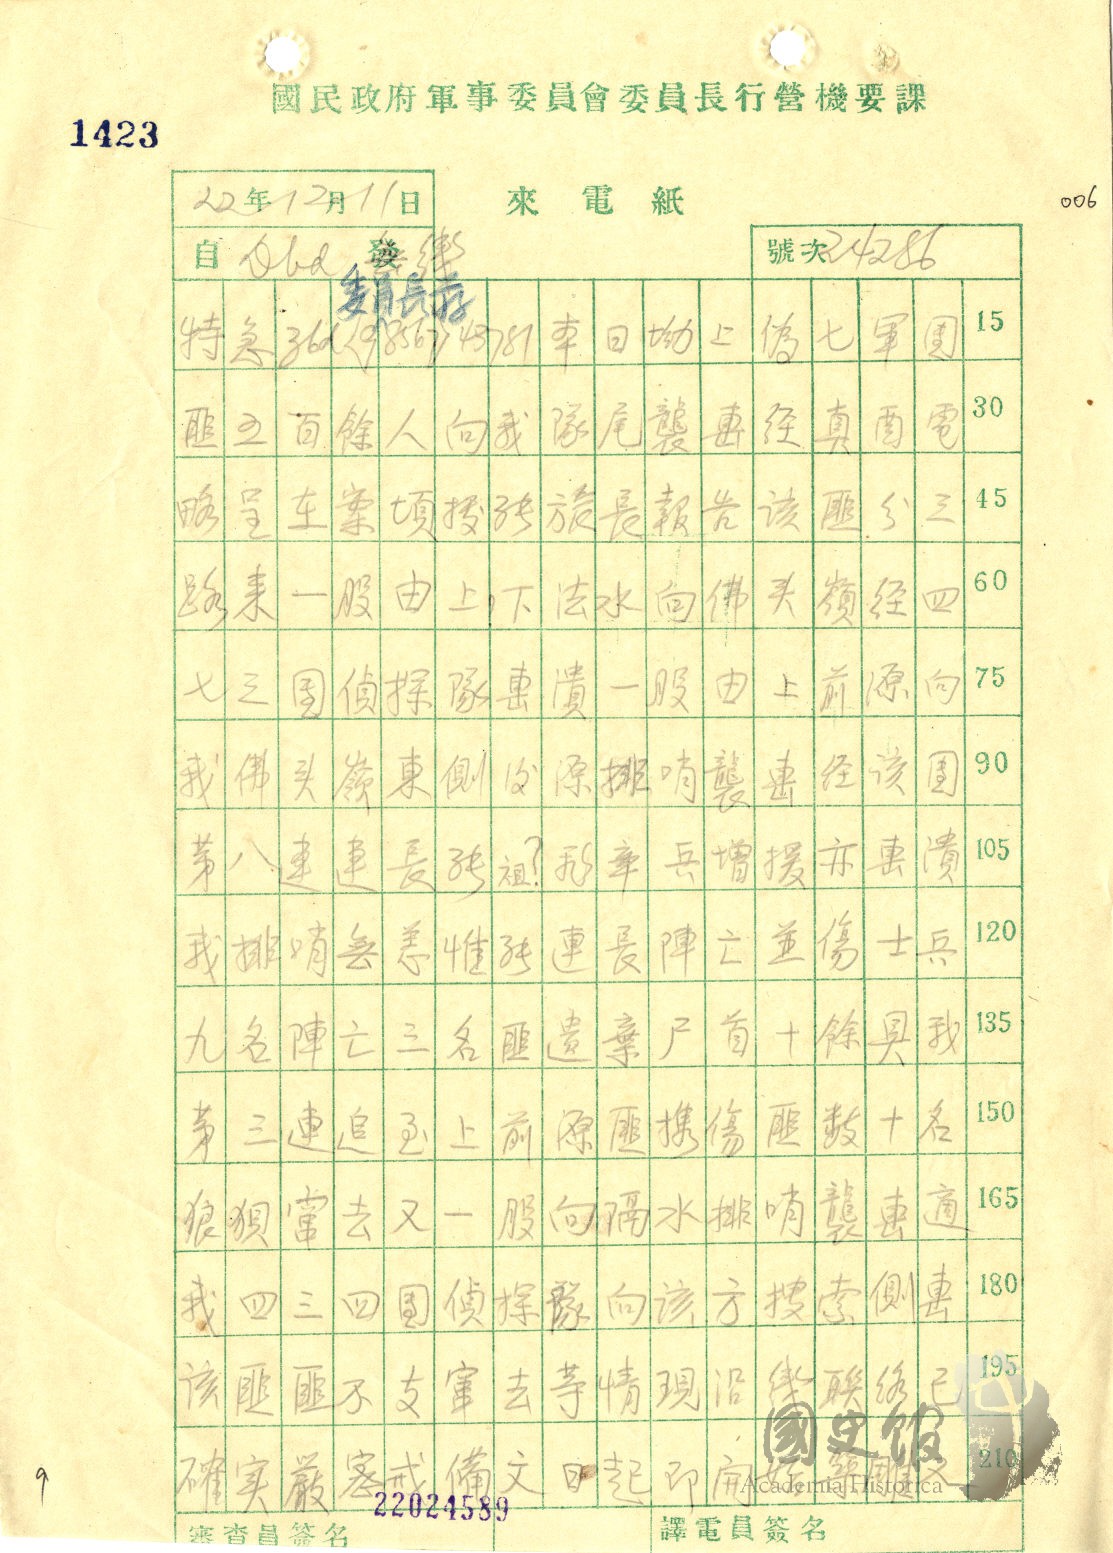 國民政府軍事委員會委員長行營機要課
1423
22年12月11日
來電紙
006
自 發
號次24286
委員長蔣
特急 本日坳上偽七軍團 15
匪五百餘人向我隊尾襲擊經真酉電 30
略呈在案頃據張旅長報告該匪分三 45
路来一股由上下法水向佛头嶺經四 60
七三團偵探隊擊潰一股由上前源向 75
我佛头嶺東側後源排哨襲擊經该團 90
第八連連長張祖?率兵增援亦擊潰 105
我排哨無恙惟張連長陣亡並傷士兵 120
九名陣亡三名匪遺棄尸首十餘具我 135
第三連追至上前源匪携傷匪数十名 150
狼狽竄去又一股向隔水排哨襲擊適 165
我四三四團偵探隊向該方搜索側擊 180
该匪匪不支竄去等情現沿線联络已 195
確实嚴密戒備文日起即開始築碉 210
22024589
審查員簽名
譯電員簽名
9
國史館
Academia Historica